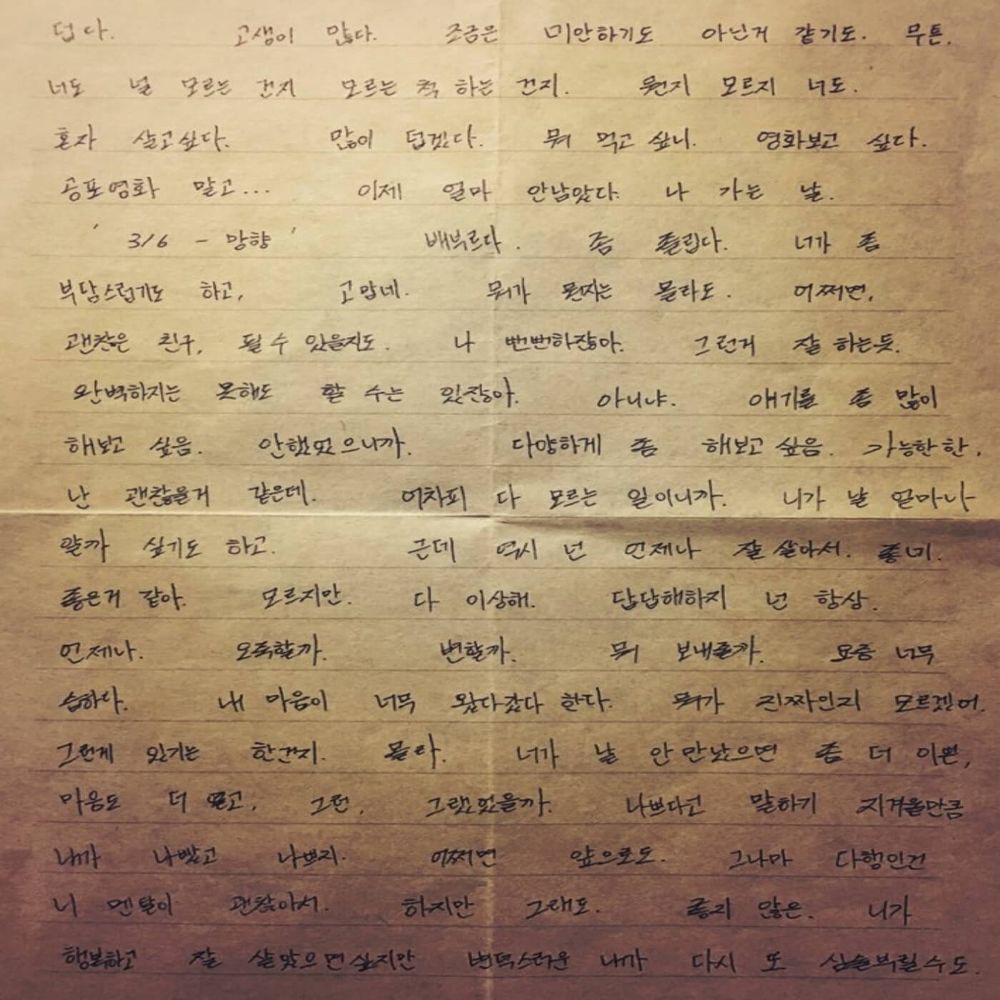 덥다. 고생이 많다. 조금은 미안하기도 아닌거 같기도. 무튼.
너도 널 모르는 건지 모르는 척 하는 건지. 뭔지 모르지 너도.
혼자 살고싶다. 많이 덥겠다. 뭐 먹고 싶니. 영화보고 싶다.
공포영화 말고... 이제 얼마 안남았다. 나 가는 날.
' 3/6 - 망향 ' 배부르다. 좀 졸립다. 너가 좀
부담스럽기도 하고, 고맙네. 뭐가 뭔지는 몰라도. 어쩌면,
괜찮은 친구, 될 수 있을지도. 나 뻔뻔하잖아. 그런거 잘 하는듯.
완벽하지는 못해도 할 수는 있잖아. 아니냐. 얘기를 좀 많이
해보고 싶음. 안했었으니까. 다양하게 좀 해보고 싶음. 가능한한.
난 괜찮을거 같은데. 어차피 다 모르는 일이니까. 니가 날 얼마나
알까 싶기도 하고. 근데 역시 넌 언제나 잘 살아서. 좋네.
좋은거 같아. 모르지만. 다 이상해. 답답해하지 넌 항상.
언제나. 오죽할까. 변할까. 뭐 보내줄까. 요즘 너무
습하다. 내 마음이 너무 왔다갔다 한다. 뭐가 진짜인지 모르겠어.
그런게 있기는 한건지. 몰라. 너가 날 안 만났으면 좀 더 이쁜,
마음도 더 그런, 그랬었을까. 나쁘다고 말하기 지겨울만큼
내가 나빴고 나쁘지. 어쩌면 앞으로도. 그나마 다행인건
니 멘탈이 괜찮아서. 하지만 그래도. 좋지 않은. 니가
행복하고 잘 살았으면싶지만 변덕스러운 내가 다시 또 심술부릴수도.